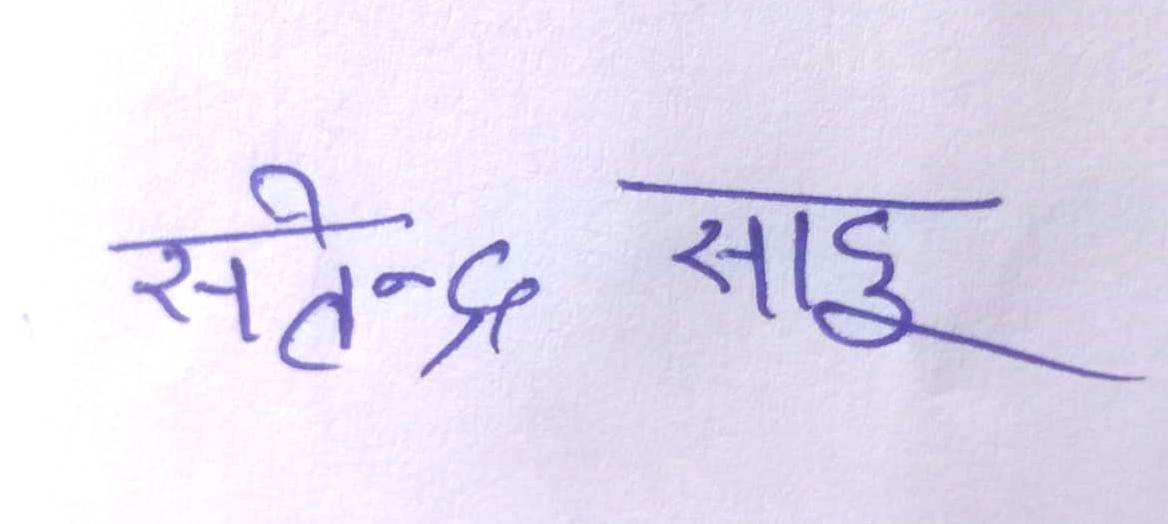 सतेन्द्र साहू